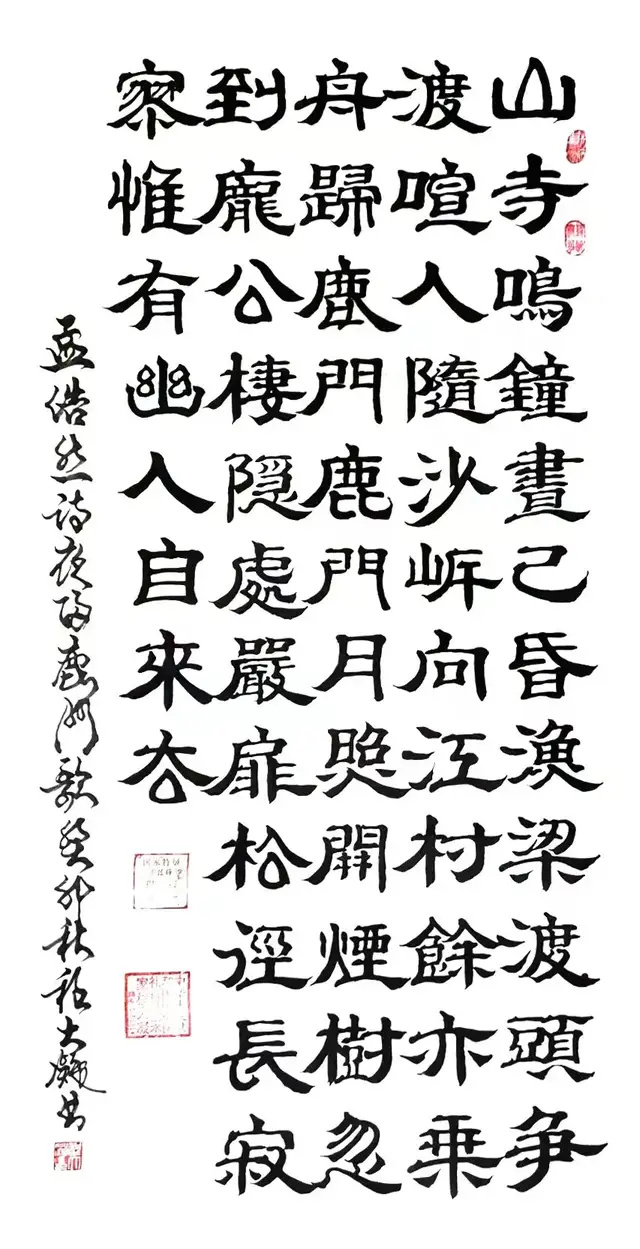 山寺鳴鐘晝己昏漁梁渡頭争
渡喧人隨沙岸向江村餘亦乗
舟歸鹿門鹿門月照開煙樹忽
到龐公棲隐處嚴扉松徑長寂
寥惟有幽人自來去
孟浩然詩夜歸鹿门歌癸卯秋程大书